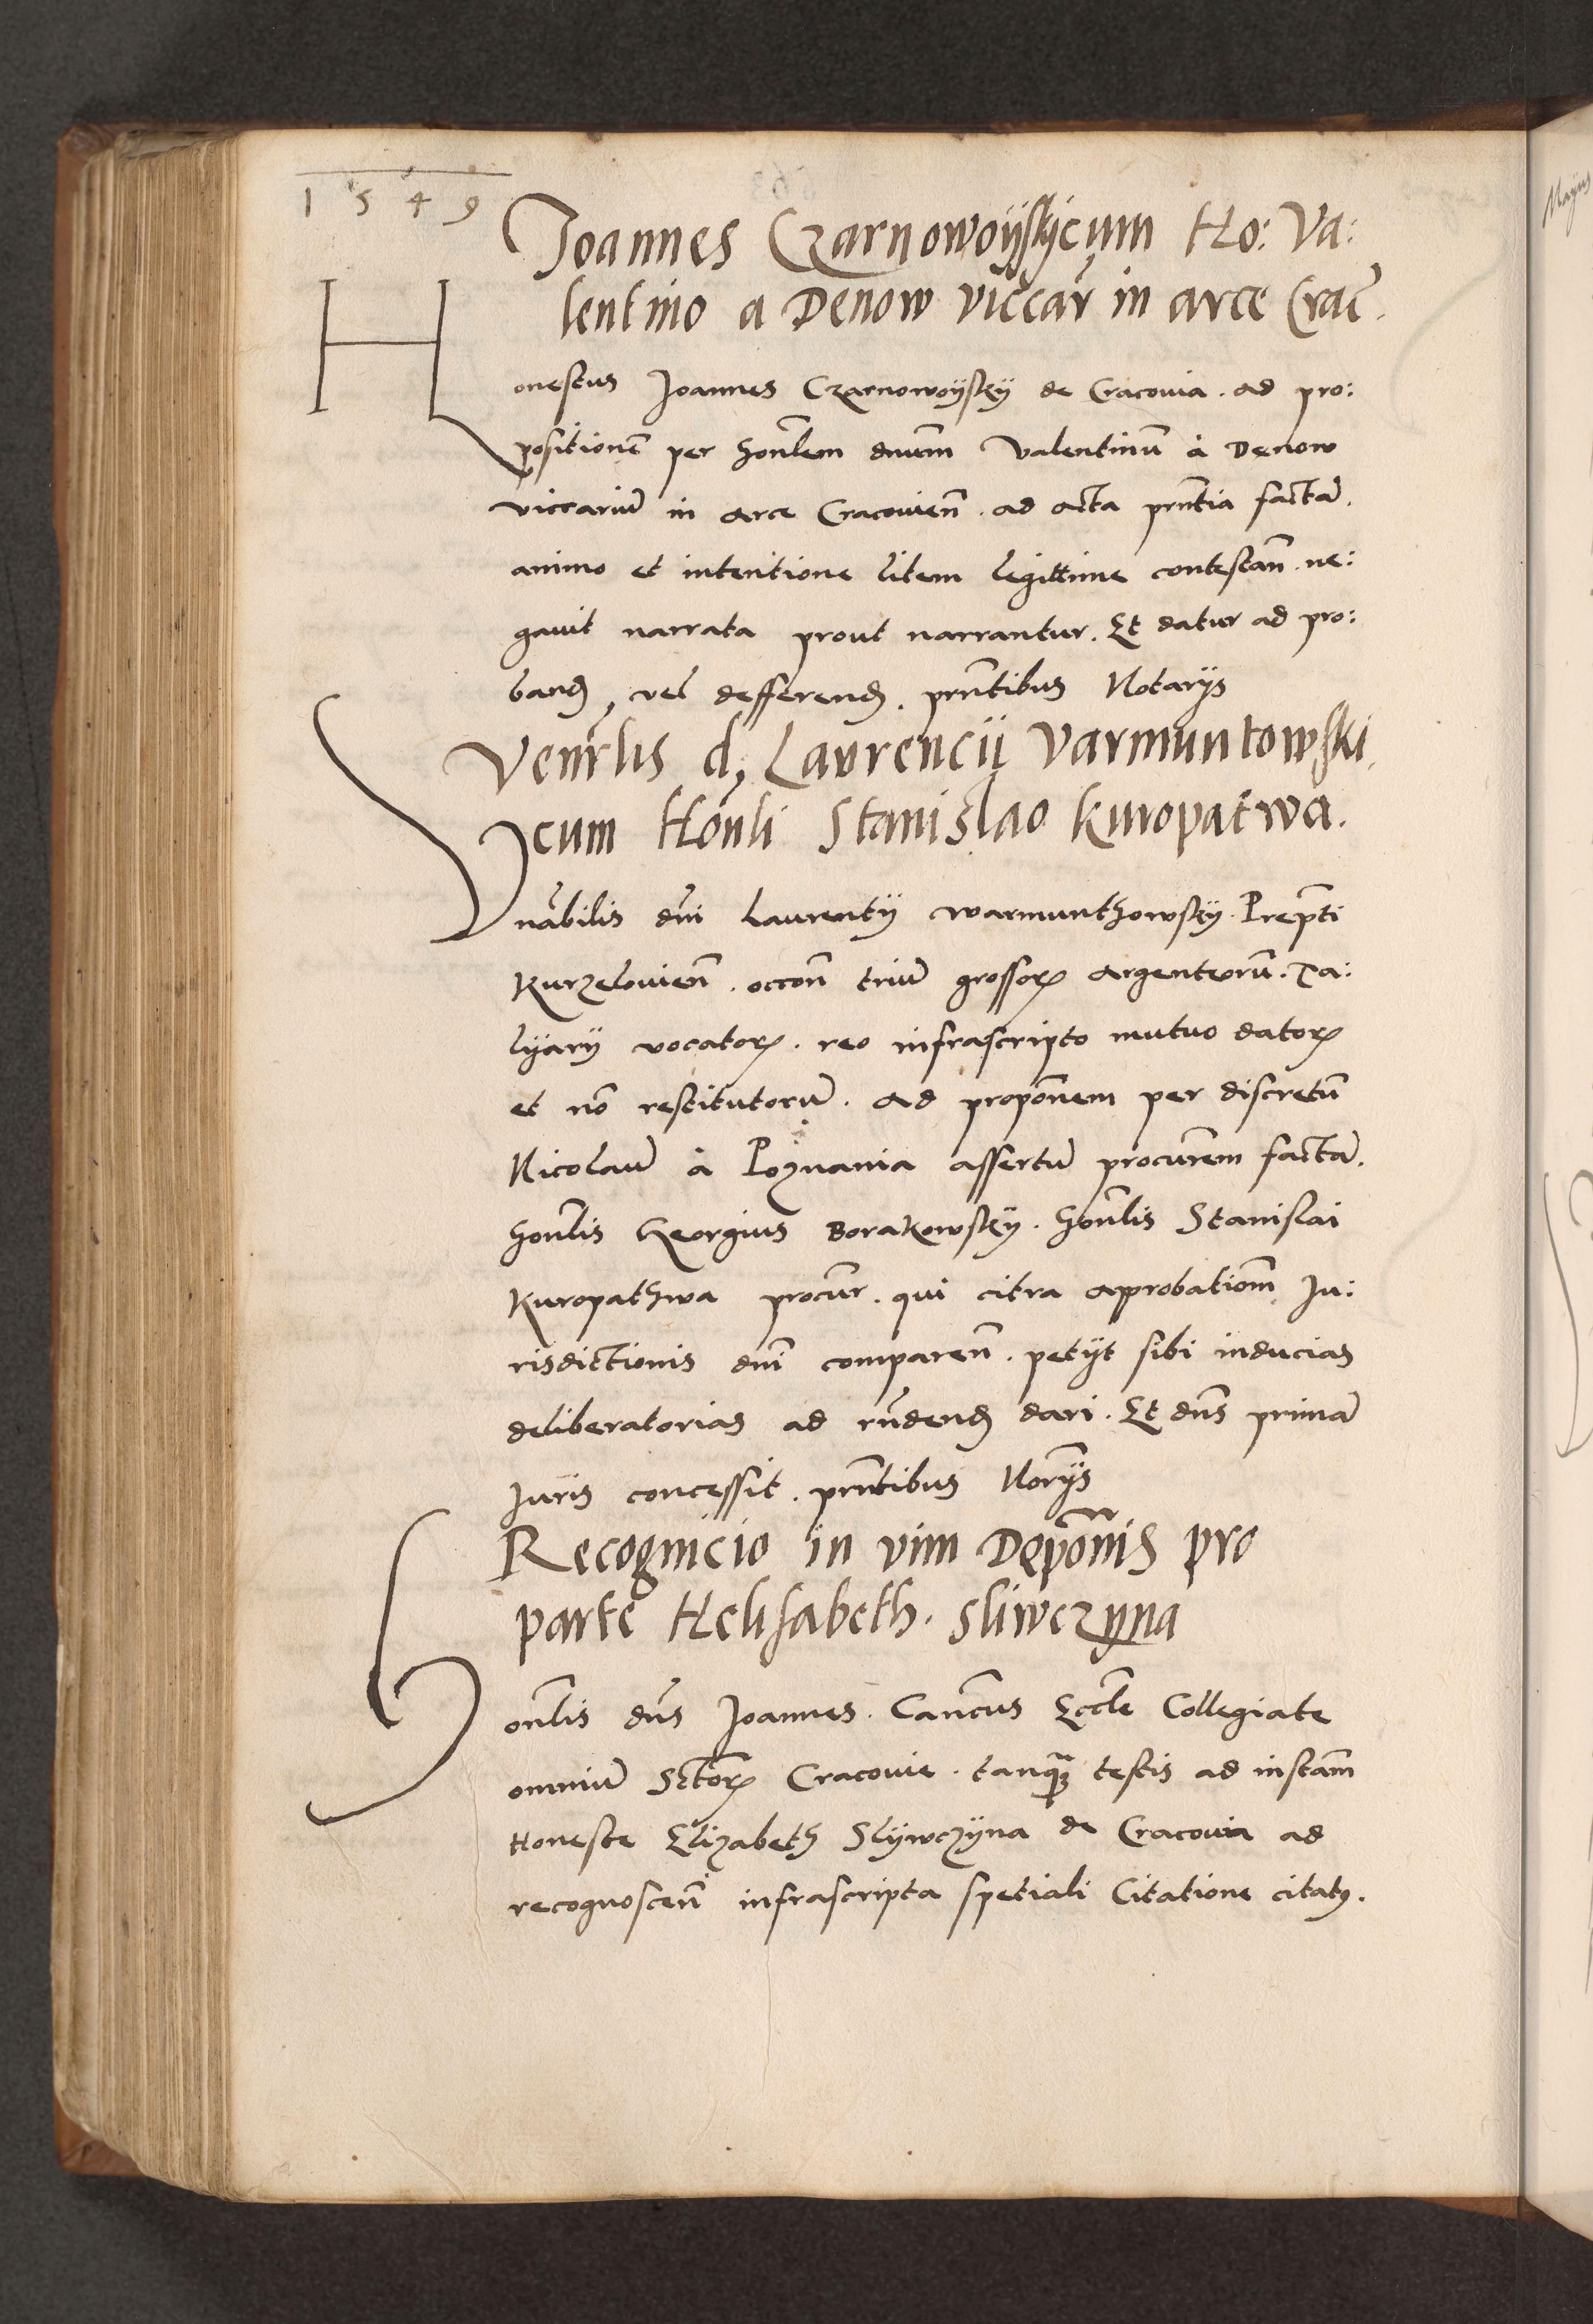 1549
Joannes Czarnowoÿskÿ cum Ho: Va:
lentino a Denow viccar̃ in arce Crac̃.
Honestus Joannes Czarnowoÿskÿ de Cracovia. ad pro:
positionẽ per hon̄lem dnum̄ Valentinū à Denow
viccariū in arce Cracovien̄. ad acta prn̄tia factā.
animo et intentione litem legittime contestan̄. ne:
gavit narrata prout narrantur. Et datur ad pro:
band̨, vel defferend̨. prn̄tibus Notarÿs
Venr̄lis d, Laurencÿ Varmuntowski
cum Hon̄li Stanislao Kuropatwa.
Vnābilis dn̄i Laurentÿ Warmunthowskÿ. Prep̄ti
Kurzelovien̄. occon̄ triū grossoꝝ argenteorū. Ta:
lÿarÿ vocatoꝝ. reo infrascripto mutuo datoꝝ
et nō restitutorū. ad propōnem per discretū
Nicolaū à Poznania assertū procur̄em factā.
Hon̄lis Georgius Borakowskÿ. Hon̄lis Stanislai
Kuropathwa procur̄. qui citra approbationm̄ Ju:
risdictionis dn̄i comparen̄. petÿt sibi inducias
deliberatorias ad rn̄dend̨ dari. Et dn̄s primā
Juris concessit. prn̄tibus Nor̄ÿs
Recognicio in vim Depōnis pro
parte Helisabeth. Sliwczyna
Honl̄is dn̄s Joannes. Canc̄us Eccl̄e Collegiate
omniū Sctōꝝ Cracovie. tanqꝫ testis ad instam̄
Honeste Elizabeth Slÿwczÿna de Cracovia ad
recognoscen̄ infrascripta spetiali Citatione citatꝰ.
Maÿus